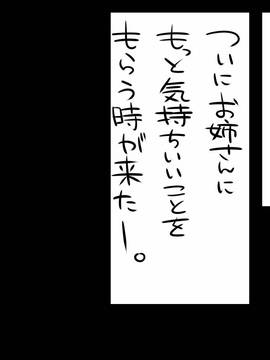 ついにお姉さんに
もっと気持ちいいことを
もらう時が来たー。